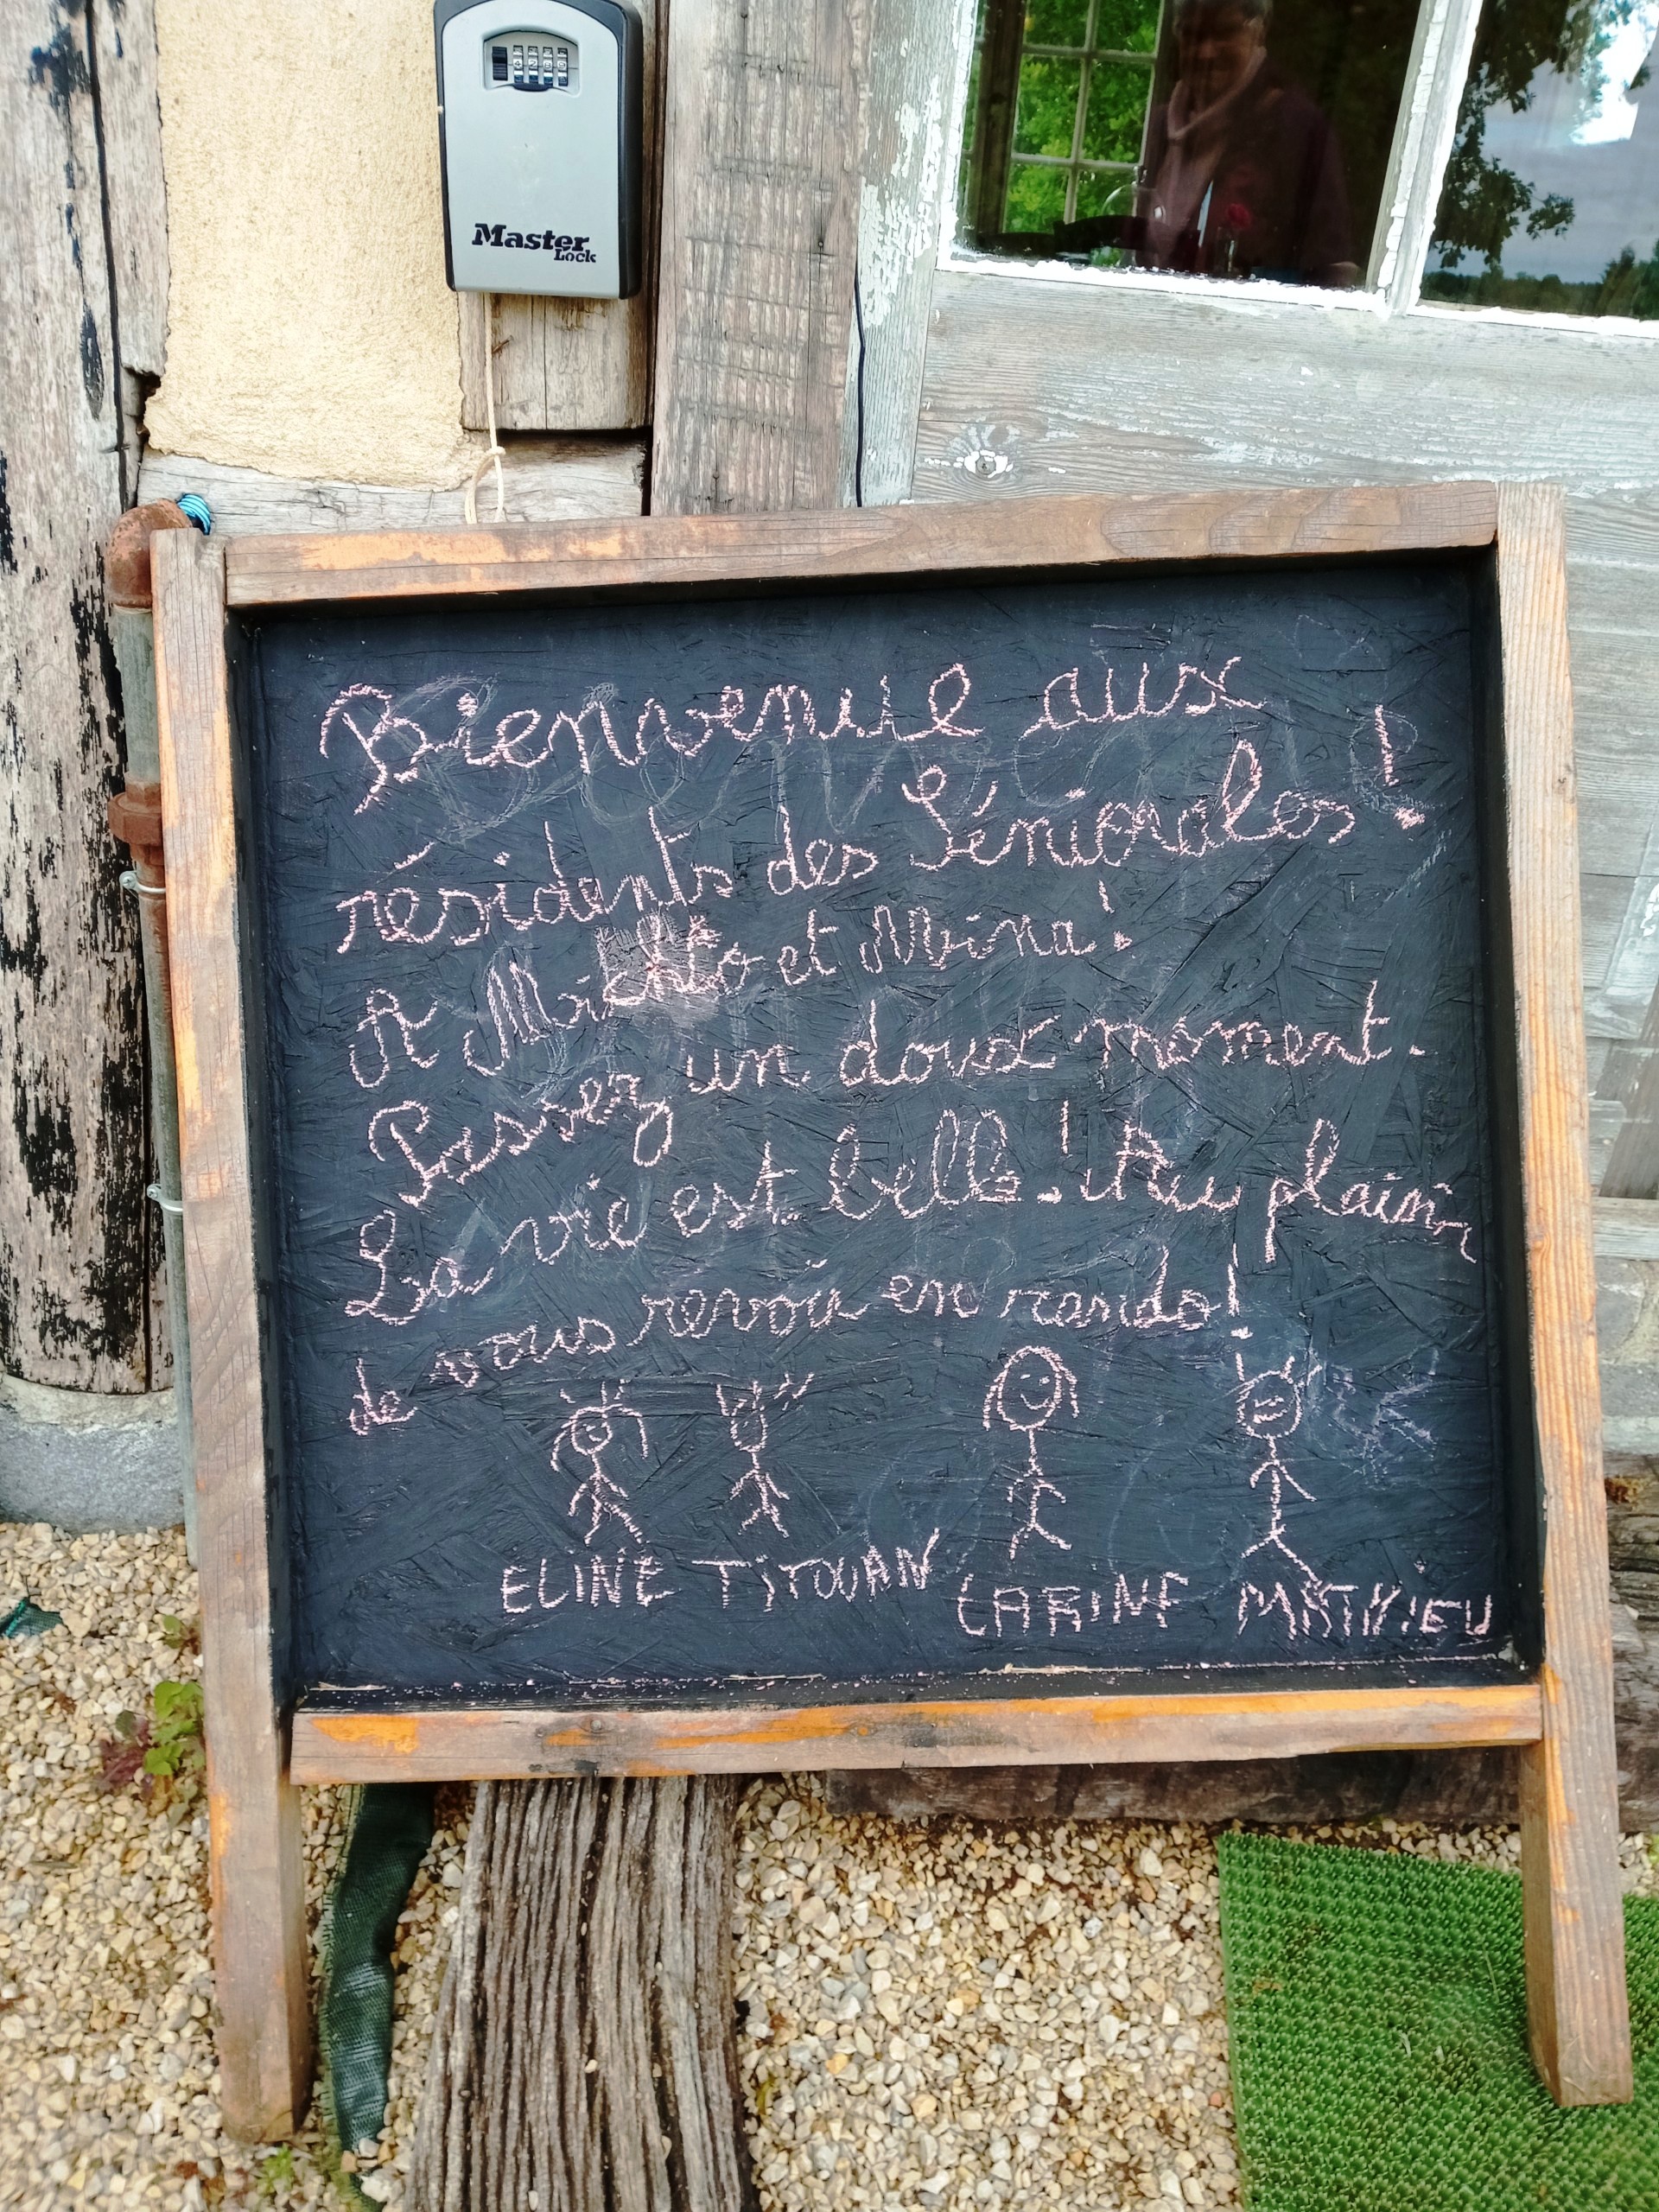 Master
Lock
Bienvenue aux
résidents des Sénioralos !
A Michto et Mina !
Passez un doux moment.
La vie est belle ! Au plaisir
de vous revoir en rando !
ELINE TiTOUAN CARINE MATHiEU